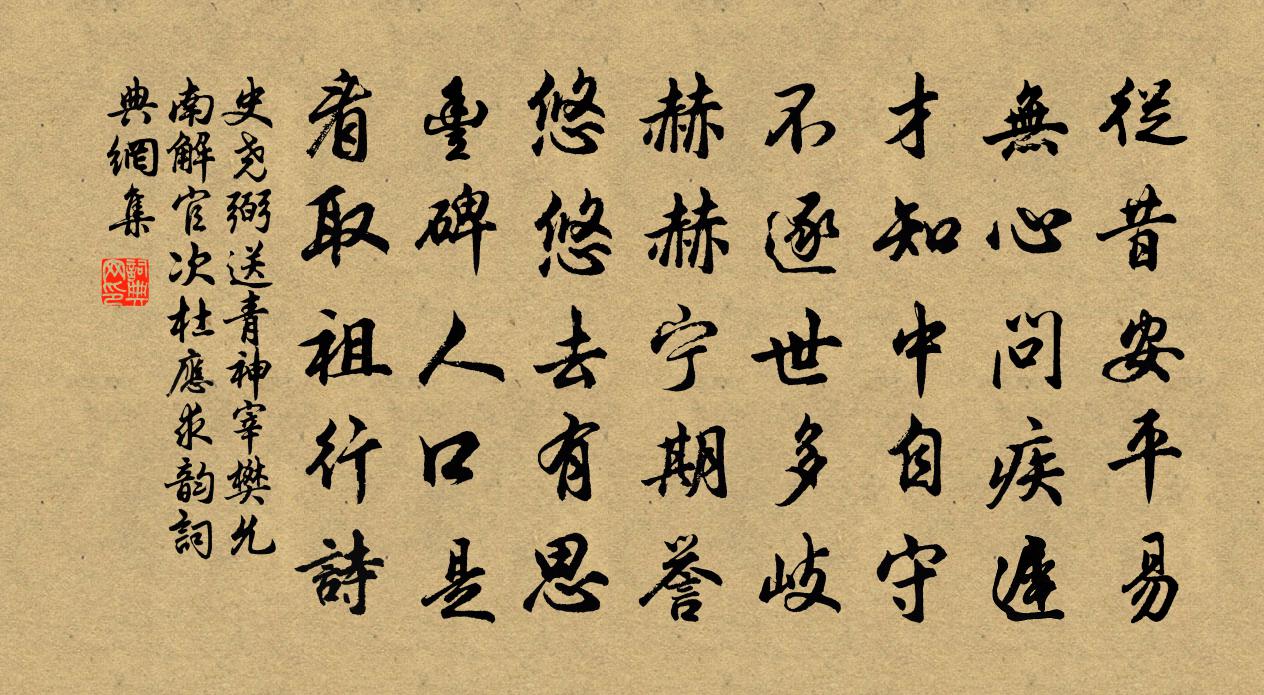 從昔安平易
無心問疾遲
才知中自守
不逐世多岐
赫赫宁期誉
悠悠去有思
豊碑人口是
看取祖行詩
史尧弼送青神宰樊允
南解官次杜應求韵詞
典網集
詞典
网印